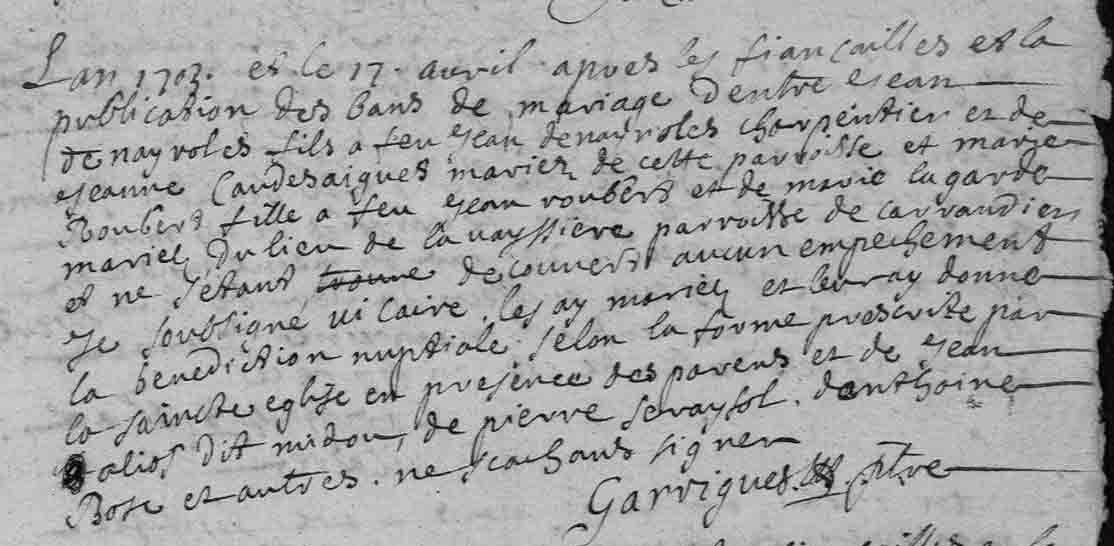 Lan 1703. et le 17. avvril apres les fiancailles et la
publication des bans de mariage dentre Jean
de nayroles fils a feu Jean denayroles charpentier et de
Jeanne Caudesaigues mariez de cette parroisse et marie
Roubert fille a feu Jean roubert et de marie lagarde
mariez du lieu de lavayssiere parroisse de carrandier
et ne sétant trouve decouvert aucun empechement
Je soubsigne vicaire les ay mariez et leur ay donne
la benediction nuptiale selon la forme prescrite par
la saincte eglise en presence des parens et de Jean
alios dit midou, de pierre Seraysol. danthoine
Bose et autres. ne scachans signer
Garrigues ptre